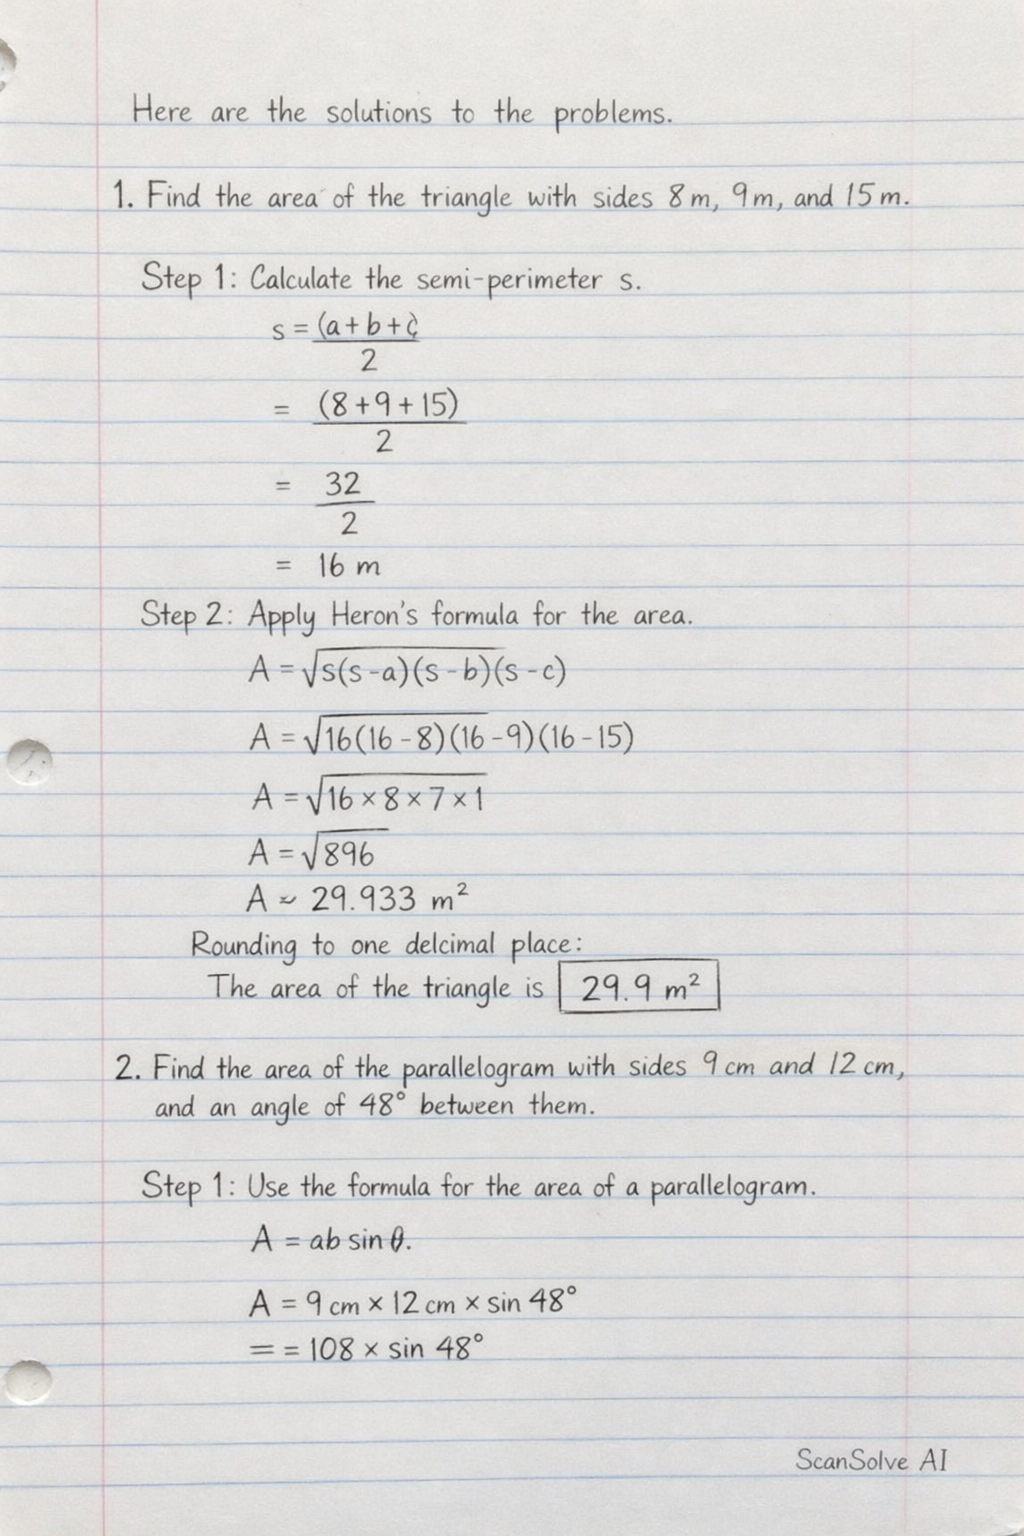 Here are the solutions to the problems.
1. Find the area of the triangle with sides 8 m, 9 m, and 15 m.
Step 1: Calculate the semi-perimeter s.
s = (a + b + c)
2
= (8 + 9 + 15)
2
= 32
2
= 16 m
Step 2: Apply Heron's formula for the area.
A = √s(s - a)(s - b)(s - c)
A = √16(16 - 8)(16 - 9)(16 - 15)
A = √16 × 8 × 7 × 1
A = √896
A ≈ 29.933 m²
Rounding to one delcimal place:
The area of the triangle is 29.9 m²
2. Find the area of the parallelogram with sides 9 cm and 12 cm,
and an angle of 48° between them.
Step 1: Use the formula for the area of a parallelogram.
A = ab sin θ.
A = 9 cm × 12 cm × sin 48°
= = 108 × sin 48°
ScanSolve AI